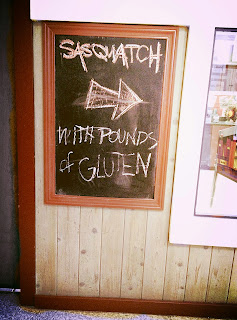 SASQUATCH
WITH POUNDS
of GLUTEN